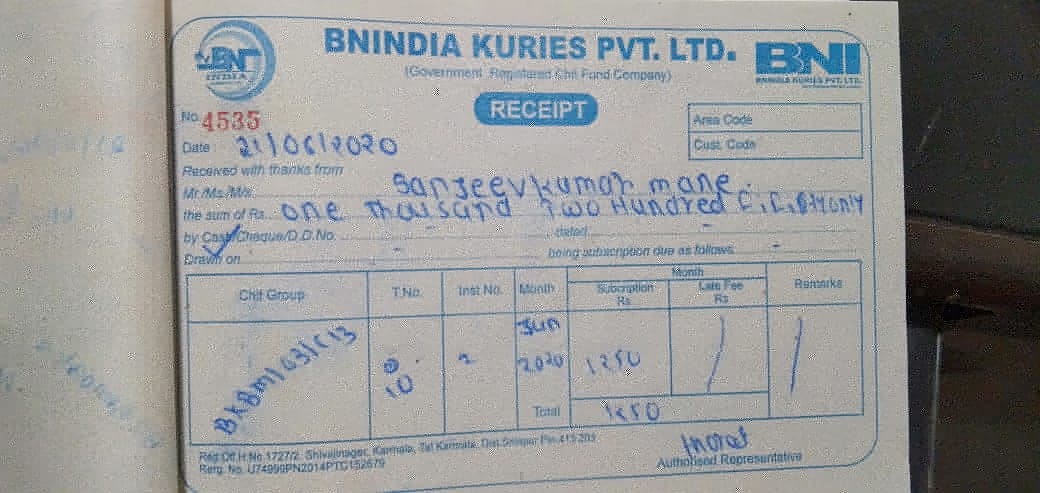 BNI
INDIA
BNINDIA KURIES PVT. LTD.
(Government Registered Chit Fund Company)
BNI
BNINDIA KURIES PVT. LTD.
RECEIPT
No. 4535
Area Code
Date 21/06/2020
Cust. Code
Received with thanks from
Mr./Ms./M/s. Sanjeevkumar mane.
the sum of Rs. one Thousand Two Hundred Fifty only
by Cash/Cheque/D.D.No. dated
Drawn on being subscription due as follows
Chit Group T.No. Inst No. Month Month Remarks
Subcription Rs Late Fee Rs
BKBM/03/C13 10 2 Jun 2020 1250
Total 1250
Reg.Off.H.No.1727/2, Shivajinagar, Karmala, Tal Karmala, Dist.Solapur Pin.413 203
Rerg. No. U74999PN2014PTC152679
Authorised Representative